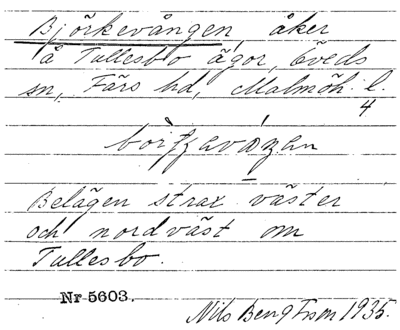 Björkevången, åker
å Tullesbo ägor, Öveds
sn, Färs hd, Malmöh. l.
4
Belägen strax väster
och nordväst om
Tullesbo.
Nr 5603.
Nils Bengtsson 1935.